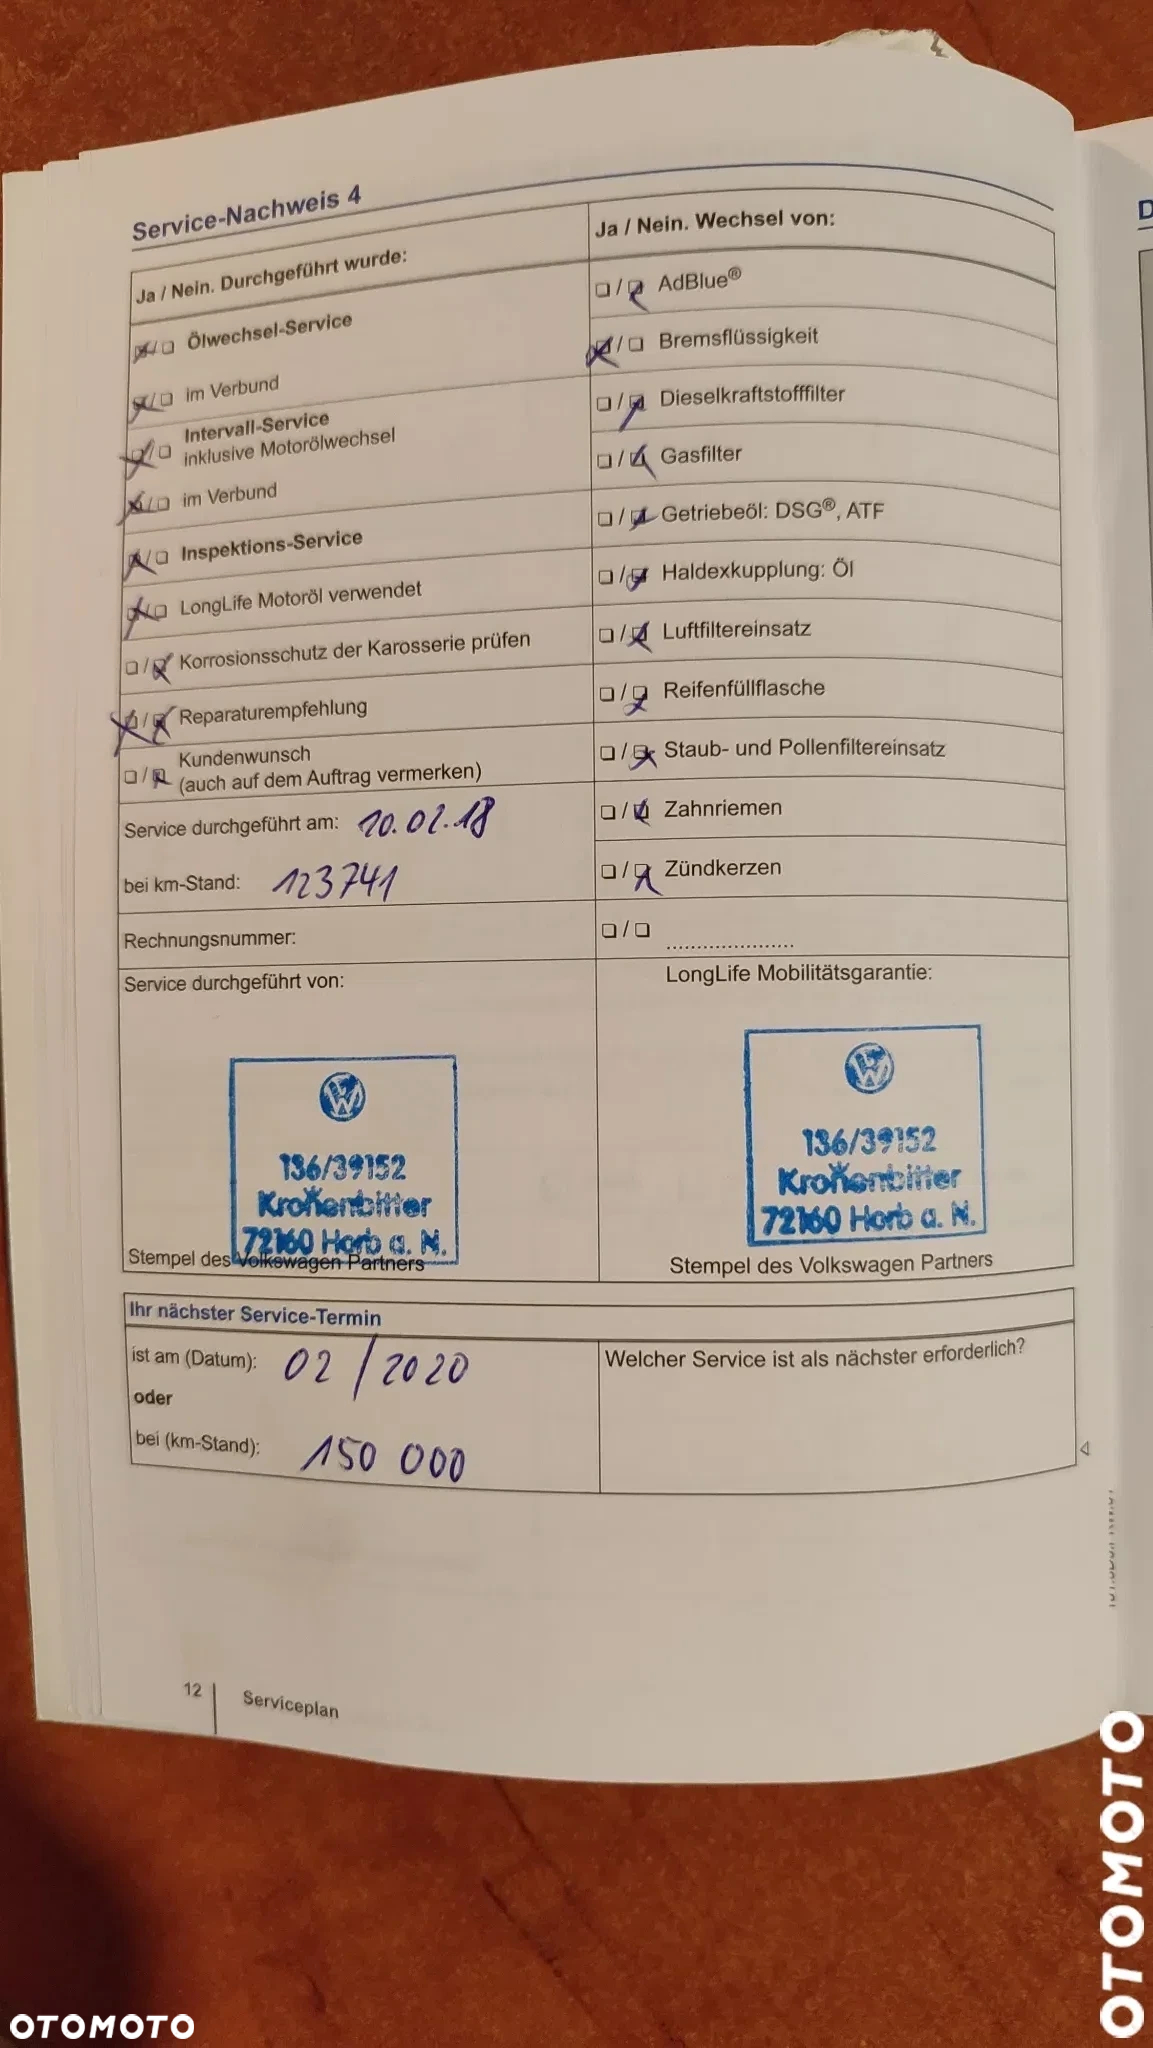 Service-Nachweis 4
Ja / Nein. Durchgeführt wurde:
Ölwechsel-Service
im Verbund
Intervall-Service
inklusive Motorölwechsel
im Verbund
Inspektions-Service
LongLife Motoröl verwendet
Korrosionsschutz der Karosserie prüfen
Reparaturempfehlung
Kundenwunsch
(auch auf dem Auftrag vermerken)
Service durchgeführt am: 10.02.18
bei km-Stand: 123741
Rechnungsnummer:
Service durchgeführt von:
136/39152
72160 Horb a. N.
Stempel des Volkswagen Partners
Ja / Nein. Wechsel von:
AdBlue®
Bremsflüssigkeit
Dieselkraftstofffilter
Gasfilter
Getriebeöl: DSG®, ATF
Haldexkupplung: Öl
Luftfiltereinsatz
Reifenfüllflasche
Staub- und Pollenfiltereinsatz
Zahnriemen
Zündkerzen
......................
LongLife Mobilitätsgarantie:
136/39152
72160 Horb a. N.
Stempel des Volkswagen Partners
Ihr nächster Service-Termin
ist am (Datum): 02/2020
oder
bei (km-Stand): 150 000
Welcher Service ist als nächster erforderlich?
12
Serviceplan
D
OTOMOTO
OTOMOTO